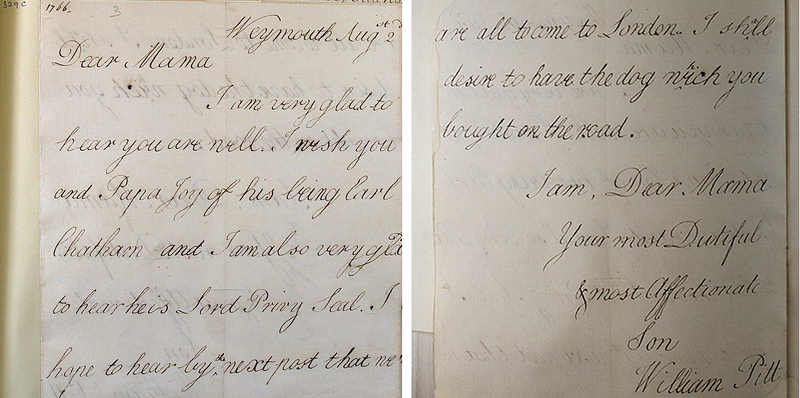 329 C
1766.
3
Weymouth Aug.st 2
Dear Mama
I am very glad to
hear you are well. I wish you
and Papa Joy of his being Earl
Chatham and I am also very glad
to hear he is Lord Privy Seal. I
hope to hear by the next post that we
are all to come to London. I still
desire to have the dog wich you
bought on the road.
I am, Dear Mama
Your most Dutiful
& most Affectionate
Son
William Pitt.